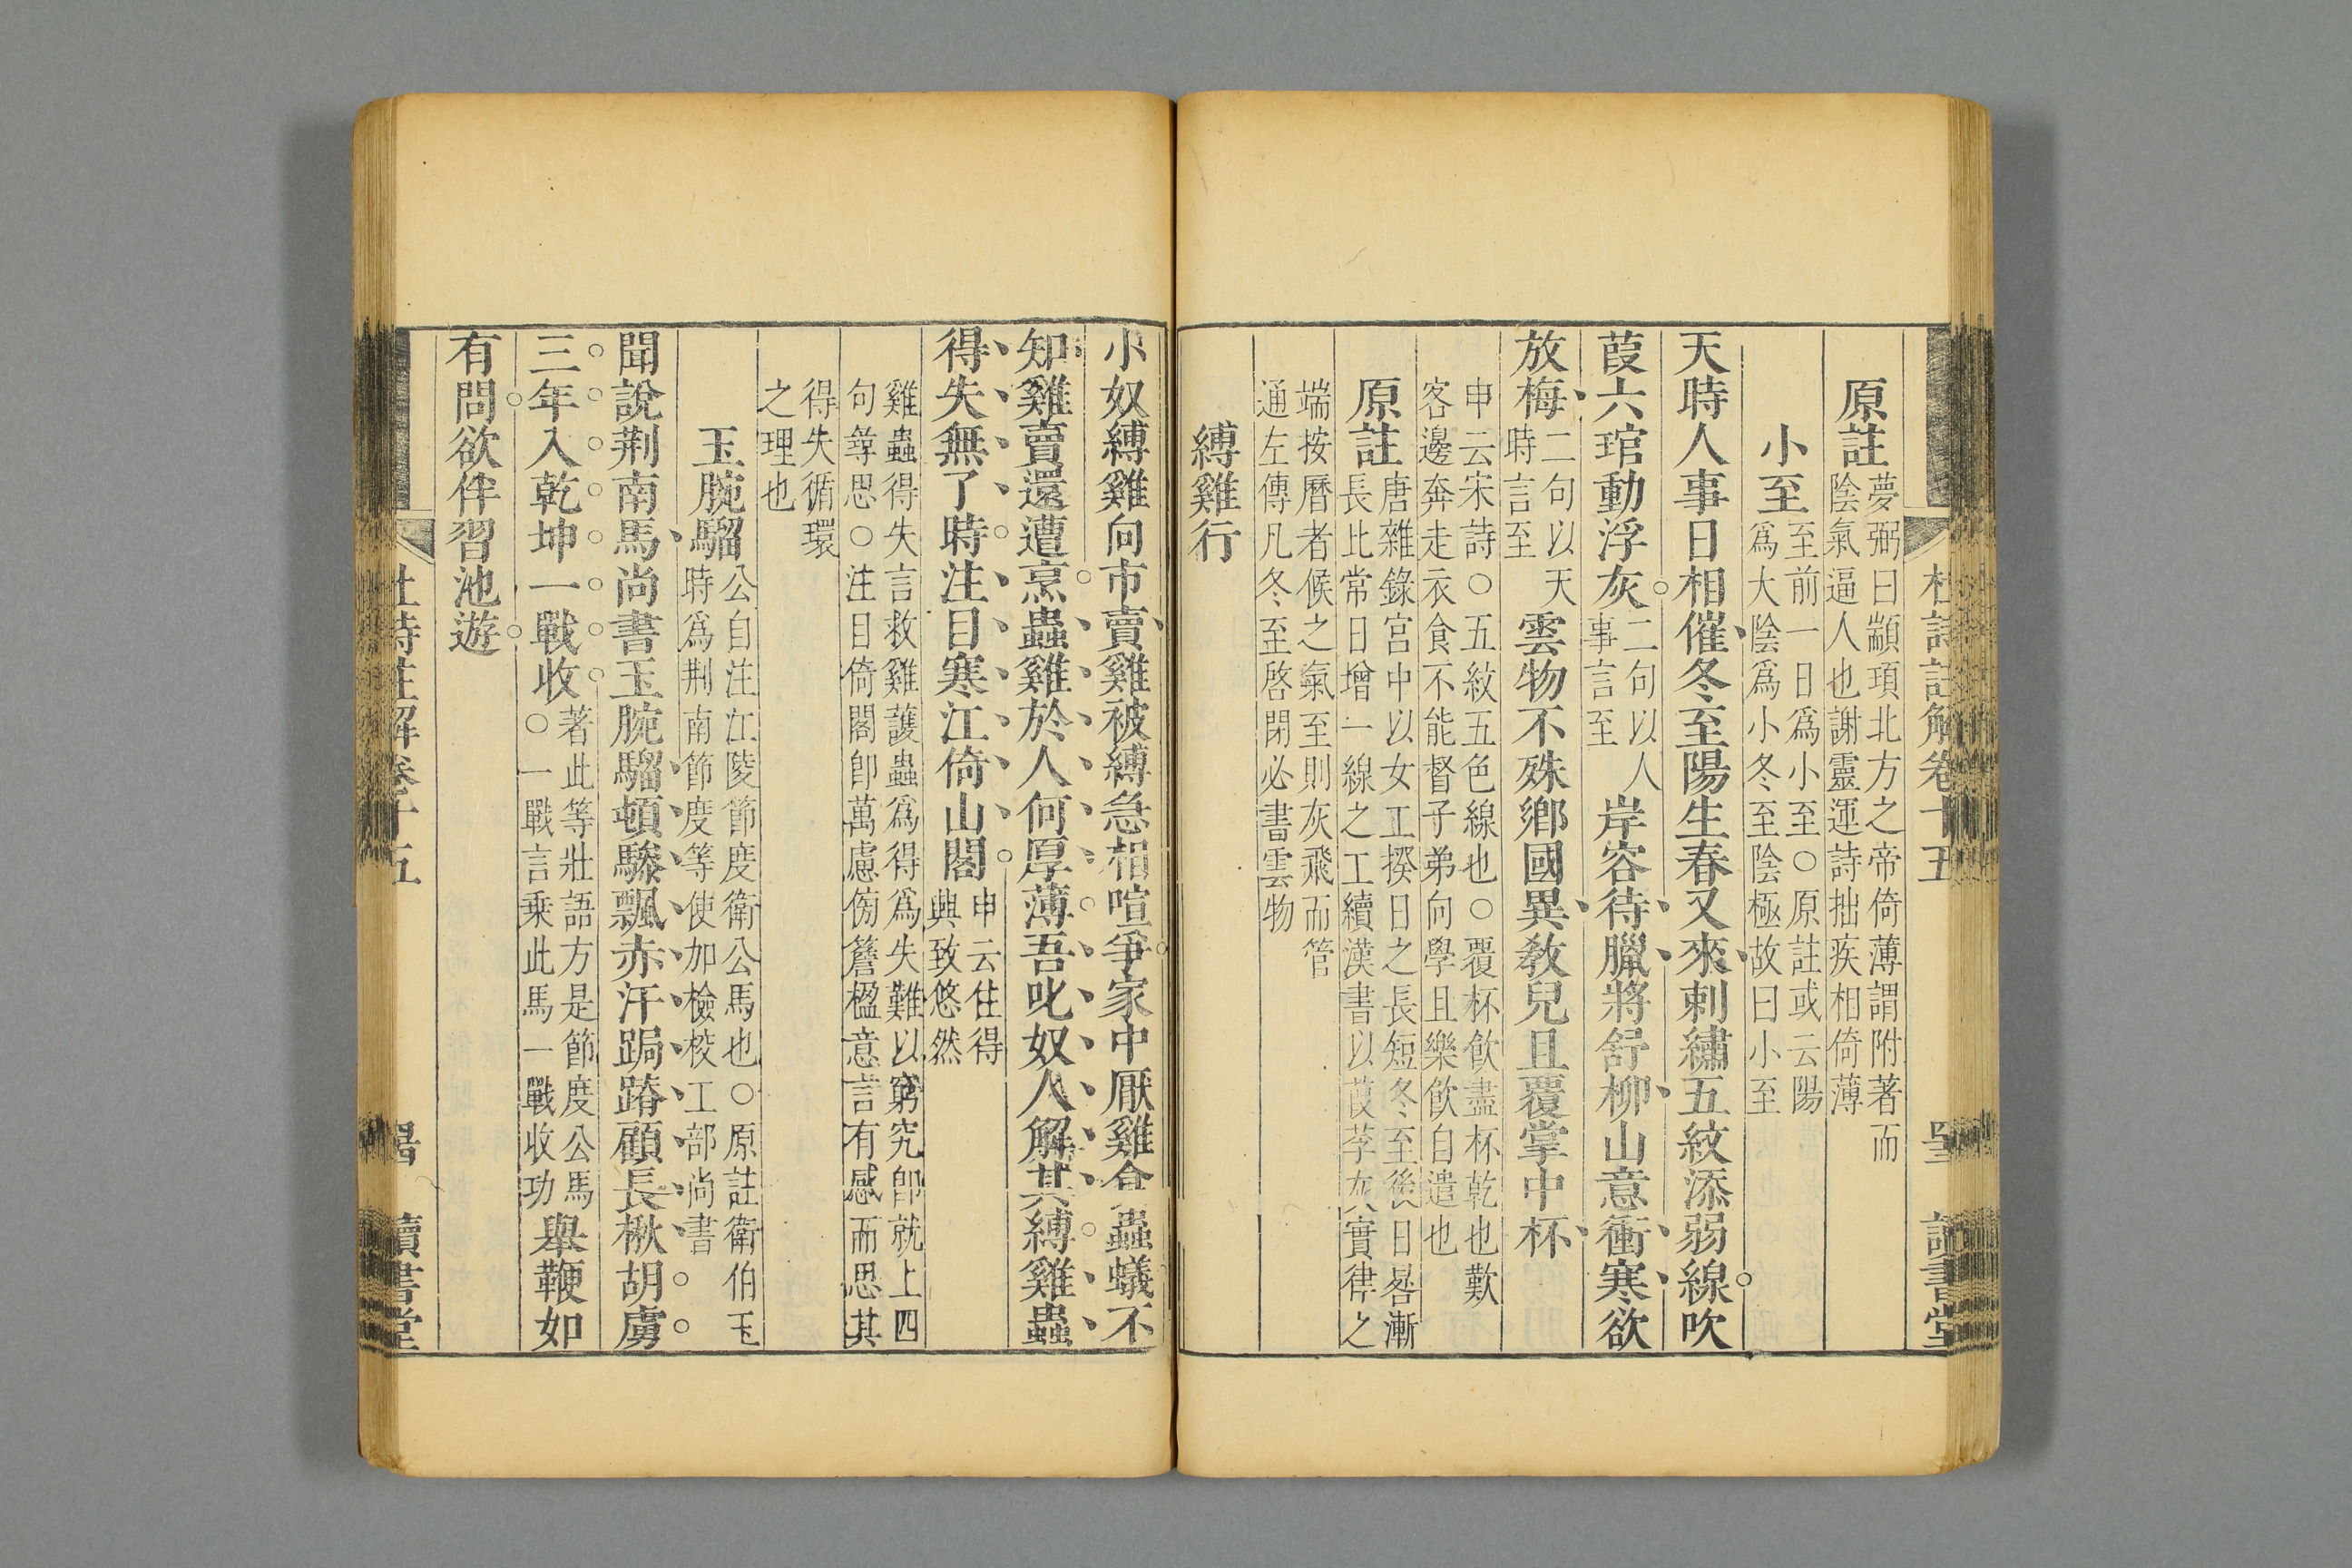 杜詩註解卷十五
讀書堂
原註 夢弼曰顓頊北方之帝倚薄謂附著而
陰氣逼人也謝靈運詩拙疾相倚薄
小至 至前一日為小至○原註或云陽
為大陰為小冬至陰極故曰小至
天時人事日相催冬至陽生春又來刺繡五紋添弱線吹
葭六琯動浮灰 二句以人
事言至 岸容待臘將舒柳山意衝寒欲
放梅 二句以天
時言至 雲物不殊鄉國異教兒且覆掌中杯
申云宋詩○五紋五色線也○覆杯飲盡杯乾也歎
客邊奔走衣食不能督子弟向學且樂飲自遣也
原註 唐雜錄宮中以女工揆日之長短冬至後日晷漸
長比常日增一線之工續漢書以葭莩灰實律之
端按曆者候之氣至則灰飛而管
通左傳凡冬至啓閉必書雲物
縛雞行
小奴縛雞向市賣雞被縛急相喧爭家中厭雞食蟲蟻不
知雞賣還遭烹蟲雞於人何厚薄吾叱奴人解其縛雞蟲
得失無了時注目寒江倚山閣 申云住得
興致悠然
雞蟲得失言救雞護蟲為得為失難以窮究卽就上四
句尊思○注目倚閣卽萬慮傍簷楹意言有感而思其
得失循環
之理也
玉腕騮 公自注江陵節度衛公馬也○原註衛伯玉
時為荆南節度等使加檢校工部尚書
聞說荆南馬尚書玉腕騮頓驂飄赤汗跼蹐顧長楸胡虜
三年入乾坤一戰收 著此等壯語方是節度公馬
○一戰言乗此馬一戰收功 舉鞭如
有問欲伴習池遊
杜詩註解卷十五
讀書堂